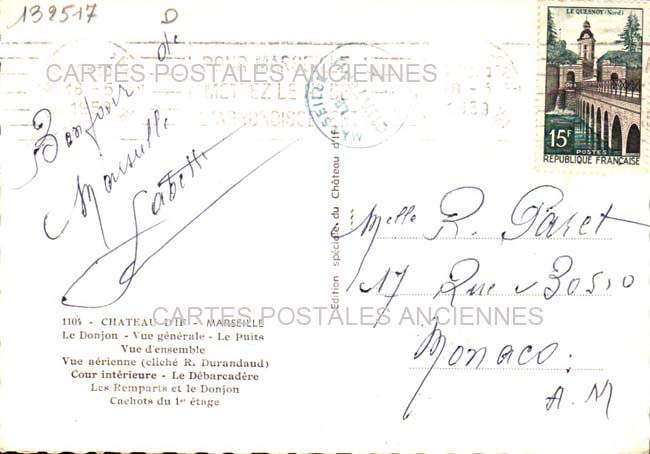 132517 D
LE QUESNOY (Nord)
15F
POSTES
REPUBLIQUE FRANÇAISE
CARTES POSTALES ANCIENNES
18-5
METTEZ LE
Bonjour de
Marseille
Edition spéciale du Château d'If
Melle R. Paret
17 Rue
Monaco.
A. M
1104 - CHATEAU D'IF - MARSEILLE
CARTES POSTALES ANCIENNES
Le Donjon - Vue générale - Le Puits
Vue d'ensemble
Vue aérienne (cliché R. Durandaud)
Cour intérieure - Le Débarcadère
Les Remparts et le Donjon
Cachots du 1er étage